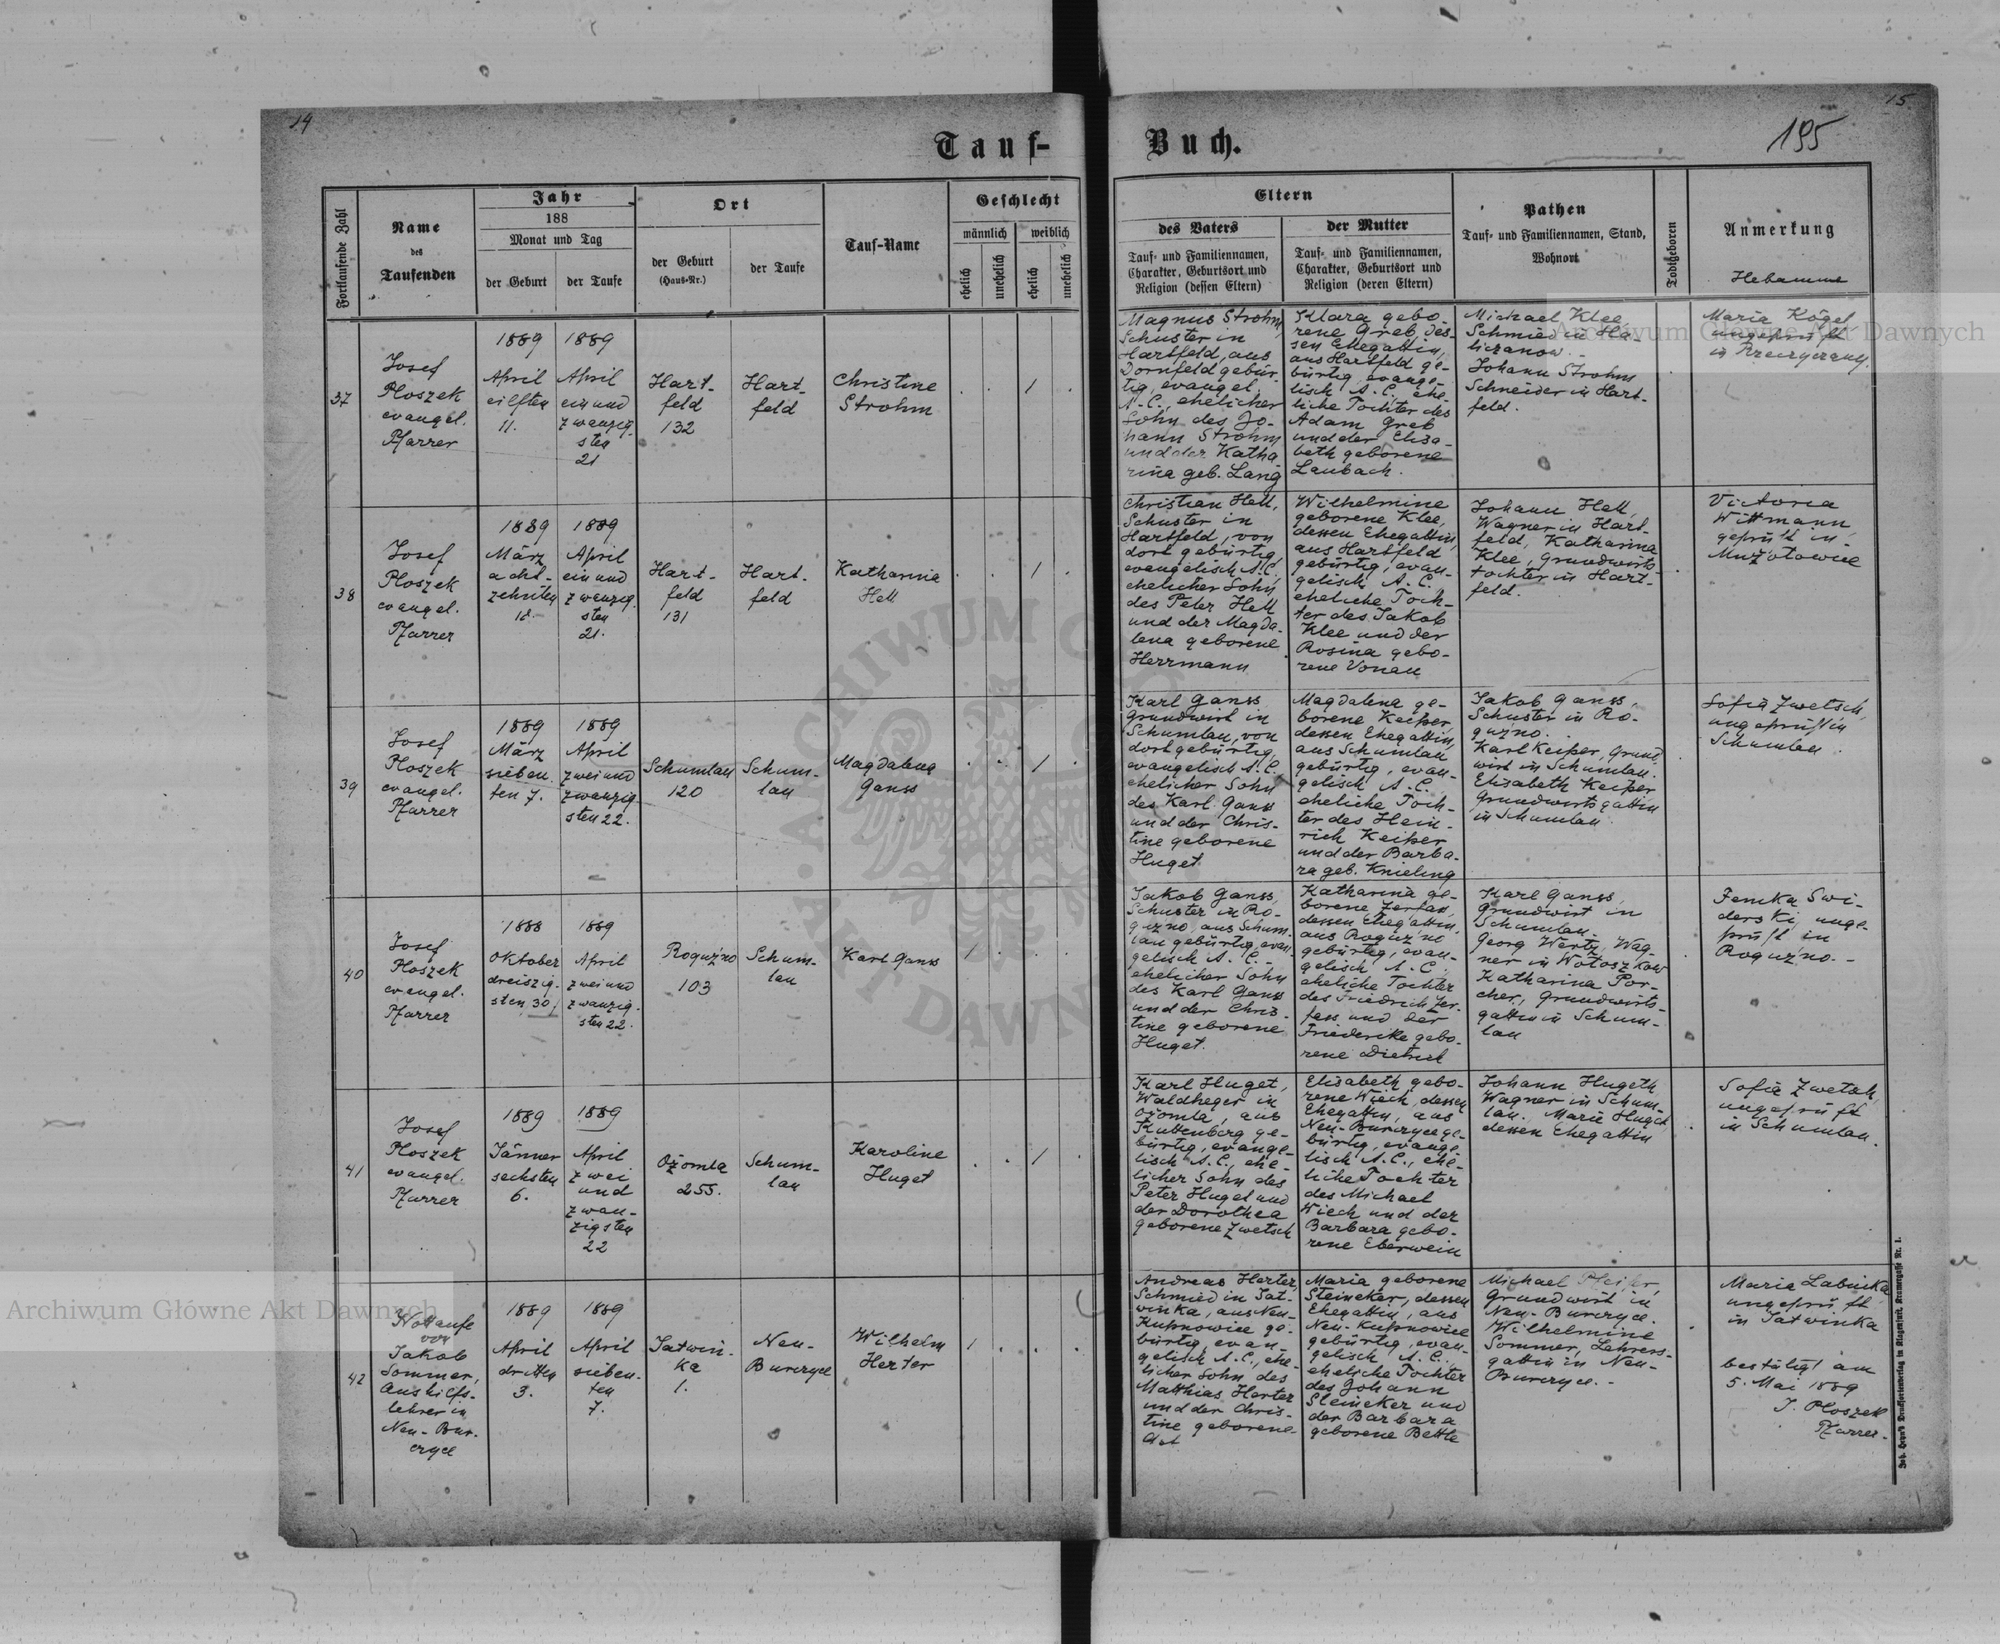 14
15
Tauf-
Buch.
195
Fortlaufende Zahl
Name
des
Taufenden
Jahr
188
Monat und Tag
der Geburt
der Taufe
Ort
der Geburt
(Haus-Nr.)
der Taufe
Tauf-Name
Geschlecht
männlich
weiblich
ehelich
unehelich
ehelich
unehelich
Eltern
des Vaters
Tauf- und Familiennamen,
Charakter, Geburtsort und
Religion (dessen Eltern)
der Mutter
Tauf- und Familiennamen,
Charakter, Geburtsort und
Religion (deren Eltern)
Pathen
Tauf- und Familiennamen, Stand,
Wohnort
Todtgeboren
Anmerkung
Hebamme
37
Josef
Ploszek
evangel.
Pfarrer
1889
April
eilften
11.
1889
April
ein und
zwanzig-
sten
21
Hart-
feld
132
Hart-
feld
Christine
Strohm
1
Magnus Strohm,
Schuster in
Hartfeld, aus
Dornfeld gebür-
tig, evangel.
A. C., ehelicher
Sohn des Jo-
hann Strohm
und der Katha
rina geb. Lang
Klara gebo-
rene Greb, des-
sen Ehegattin,
aus Hartfeld ge-
bürtig, evange-
lisch A. C., ehe-
liche Tochter des
Adam Greb
und der Elisa-
beth geborene
Laubach.
Michael Klee,
Schmied in Ha-
liczanow.
Johann Strohm
Schneider in Hart-
feld.
Maria Kögel
ungeprüft
in
38
Josef
Ploszek
evangel.
Pfarrer
1889
März
acht-
zehnten
18.
1889
April
ein und
zwanzig-
sten
21.
Hart-
feld
131
Hart-
feld
Katharina
Hell
1
Christian Hell,
Schuster in
Hartfeld, von
dort gebürtig,
evangelisch A. C.
ehelicher Sohn
des Peter Hell
und der Magda-
lena geborene
Herrmann
Wilhelmine
geborene Klee,
dessen Ehegattin,
aus Hartfeld
gebürtig, evan-
gelisch A. C.
eheliche Toch-
ter des Jakob
Klee und der
Rosina gebo-
rene Vonau
Johann Hell,
Wagner in Hart-
feld, Katharina
Klee, Grundwirts-
tochter in Hart-
feld.
Victoria
Wittmann,
geprüft in
Mużołowice
39
Josef
Ploszek
evangel.
Pfarrer
1889
März
sieben-
ten 7.
1889
April
zwei und
zwanzig-
sten 22.
Schumlau
120
Schum-
lau
Magdalena
Ganss
1
Karl Ganss
Grundwirt in
Schumlau, von
dort gebürtig,
evangelisch A. C.
ehelicher Sohn
des Karl Ganss
und der Chris-
tine geborene
Huget
Magdalena ge-
borene Keiper
dessen Ehegattin,
aus Schumlau
gebürtig, evan-
gelisch A. C.
eheliche Toch-
ter des Hein-
rich Keiper
und der Barba-
ra geb. Knieling
Jakob Ganss,
Schuster in Ro-
guzno.
Karl Keiper, Grund-
wirt in Schumlau.
Elisabeth Keiper
Grundwirtsgattin
in Schumlau
Sofia Zwetsch,
ungeprüft in
Schumlau.
40
Josef
Ploszek
evangel.
Pfarrer
1888
Oktober
dreiszig-
sten 30.
1889
April
zwei und
zwanzig-
sten 22.
Roguźno
103
Schum-
lau
Karl Ganss
1
Jakob Ganss,
Schuster in Ro-
guzno, aus Schum-
lau gebürtig, evan-
gelisch A. C.
ehelicher Sohn
des Karl Ganss
und der Chris-
tine geborene
Huget.
Katharina ge-
borene Zerfass,
dessen Ehegattin,
aus Roguzno
gebürtig, evan-
gelisch A. C.
eheliche Tochter
des Friedrich Zer-
fass und der
Friederike gebo-
rene Dietrich
Karl Ganss,
Grundwirt in
Schumlau.
Georg Wertz, Wag-
ner in Wołoszkow
Katharina Por-
cher, Grundwirts-
gattin in Schum-
lau
Femka Swi-
derski, unge-
prüft in
Roguzno.
41
Josef
Ploszek
evangel.
Pfarrer
1889
Jänner
sechsten
6.
1889
April
zwei
und
zwan-
zigsten
22
Ożomla
255.
Schum-
lau
Karoline
Huget
1
Karl Huget,
Waldheger in
Ożomla, aus
Kuttenberg ge-
bürtig, evange-
lisch A. C., ehe-
licher Sohn des
Peter Huget und
der Dorothea
geborene Zwetsch
Elisabeth gebo-
rene Wiech, dessen
Ehegattin, aus
Neu-Burczyce ge-
bürtig, evange-
lisch A. C., ehe-
liche Tochter
des Michael
Wiech und der
Barbara gebo-
rene Eberwein
Johann Hugeth
Wagner in Schum-
lau. Marie Huget
dessen Ehegattin
Sofia Zwetsch,
ungeprüft
in Schumlau.
42
Nottaufe
von
Jakob
Sommer,
Aushilfs-
lehrer in
Neu-Bur-
czyce
1889
April
dritten
3.
1889
April
sieben-
ten
7.
Tatwin-
ka
1.
Neu-
Burczyce
Wilhelm
Herter
1
Andreas Herter,
Schmied in Tat-
winka, aus Neu-
Kupnowice ge-
bürtig, evan-
gelisch A. C., ehe-
licher Sohn des
Matthias Herter
und der Chris-
tine geborene
Maria geborene
Steineker, dessen
Ehegattin, aus
Neu-Kupnowice
gebürtig, evan-
gelisch A. C.
eheliche Tochter
des Johann
Steineker und
der Barbara
geborene Bettle
Michael
Grundwirt in
Neu-Burczyce.
Wilhelmine
Sommer, Lehrers-
gattin in Neu-
Burczyce.
Maria Labinka
ungeprüft
in Tatwinka
bestätigt am
5. Mai 1889
J. Ploszek
Pfarrer.
Archiwum Główne Akt Dawnych
Archiwum Główne Akt Dawnych